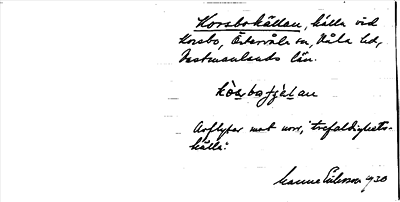 Korsbokällan, källa vid
Korsbo, Östervåla sn, Våla hd,
Västmanlands län.
Avflyter mot norr, trefaldighets-
källa.
Manne Eriksson 1930